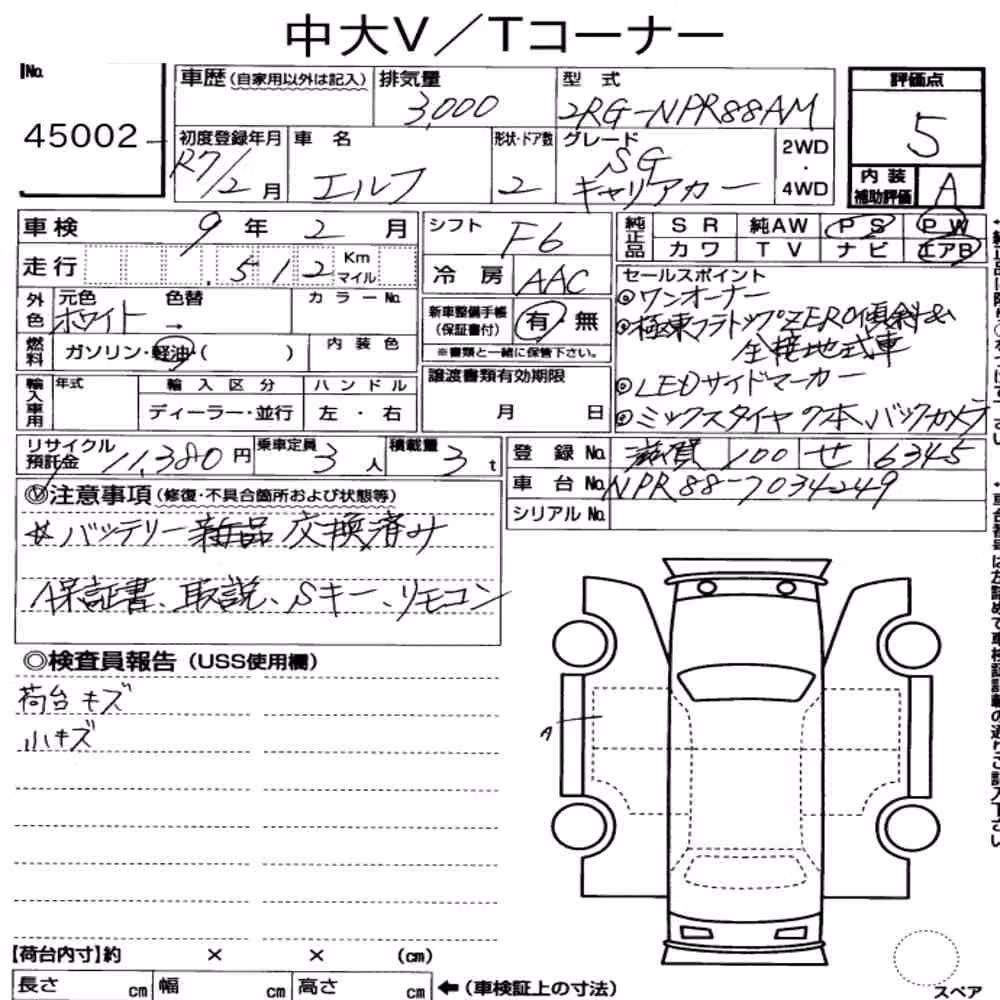 中大V／Tコーナー
No. 45002
車歴 (自家用以外は記入)
排気量 3,000
型式 2RG-NPR88AM
評価点 5
初度登録年月 R7/2月
車名 エルフ
形状・ドア数 2
グレード SG キャリアカー
2WD・4WD
内装補助評価 A
車検 9年 2月
シフト F6
純正品 SR 純AW PS PW
カワ TV ナビ エアB
走行 512 Km マイル
冷房 AAC
セールスポイント
◎ワンオーナー
◎極東フラトップZERO傾斜&
全接地式車
◎LEDサイドマーカー
◎ミックスタイヤ7本、バックカメラ
外色 元色 ホワイト → 色替 カラーNo.
新車整備手帳(保証書付) 有・無
※書類と一緒に保管下さい。
燃料 ガソリン・軽油・( ) 内装色
譲渡書類有効期限
月 日
輸入車用 年式 輸入区分 ハンドル
ディーラー・並行 左・右
リサイクル預託金 11,380円
乗車定員 3人
積載量 3t
登録No. 滋賀 100 せ 6345
車台No. NPR88-7034249
シリアルNo.
◎注意事項 (修復・不具合箇所および状態等)
バッテリー新品交換済み
保証書、取説、Sキー、リモコン
◎検査員報告 (USS使用欄)
荷台キズ
小キズ
A
【荷台内寸】約 × × (cm)
長さ cm 幅 cm 高さ cm ←(車検証上の寸法)
スペア